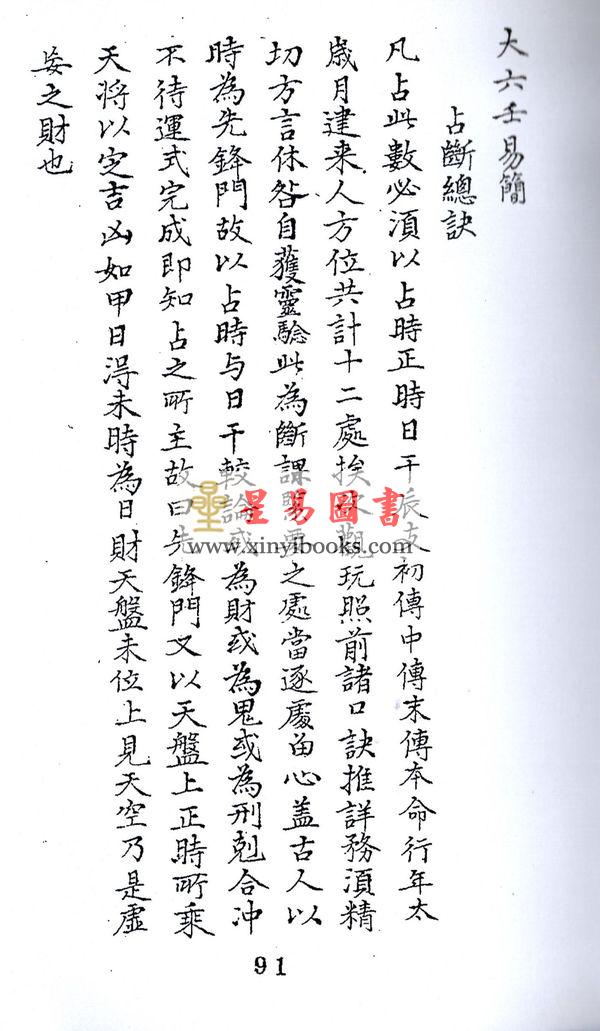 大六壬易簡
占斷總訣
凡占此數必須以占時正時日干辰支初傳中傳末傳本命行年太
歲月建来人方位共計十二處挨次觀玩照前諸口訣推詳務須精
切方言休咎自獲靈驗此為斷課緊要之處當逐處留心盖古人以
時為先鋒門故以占時与日干較論或為財或為鬼或為刑剋合冲
不待運式完成即知占之所主故曰先鋒門又以天盤上正時所乘
天将以定吉凶如甲日得未時為日財天盤未位上見天空乃是虛
妄之財也
星易圖書
www.xinyibooks.com
91